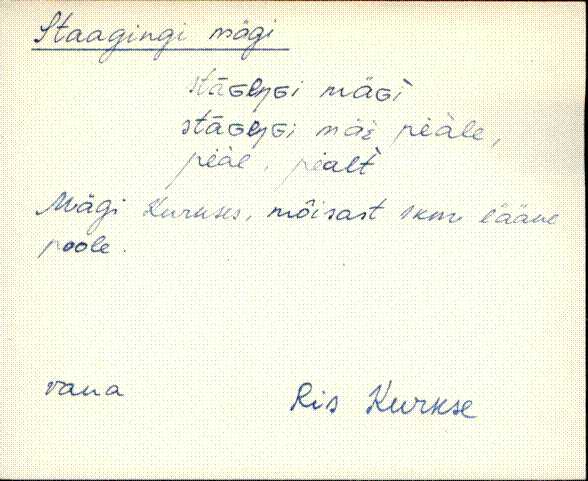 Staagingi mägi
stāɢeŋɢi mäɢì
stāɢeŋɢi mäè pèäle,
pèäl, pèalt
Mägi Kurkses, mõisast 1km lääne
poole.
vana
Ris Kurkse